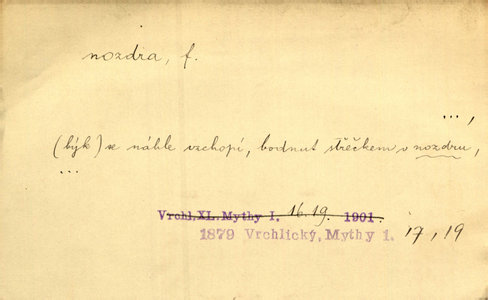 nozdra, f.
...,
(býk) se náhle vzchopí, bodnut střečkem v nozdru,
...
Vrchl. XL. Mythy I. 16.19. 1901.
1879 Vrchlický, Mythy 1. 17, 19